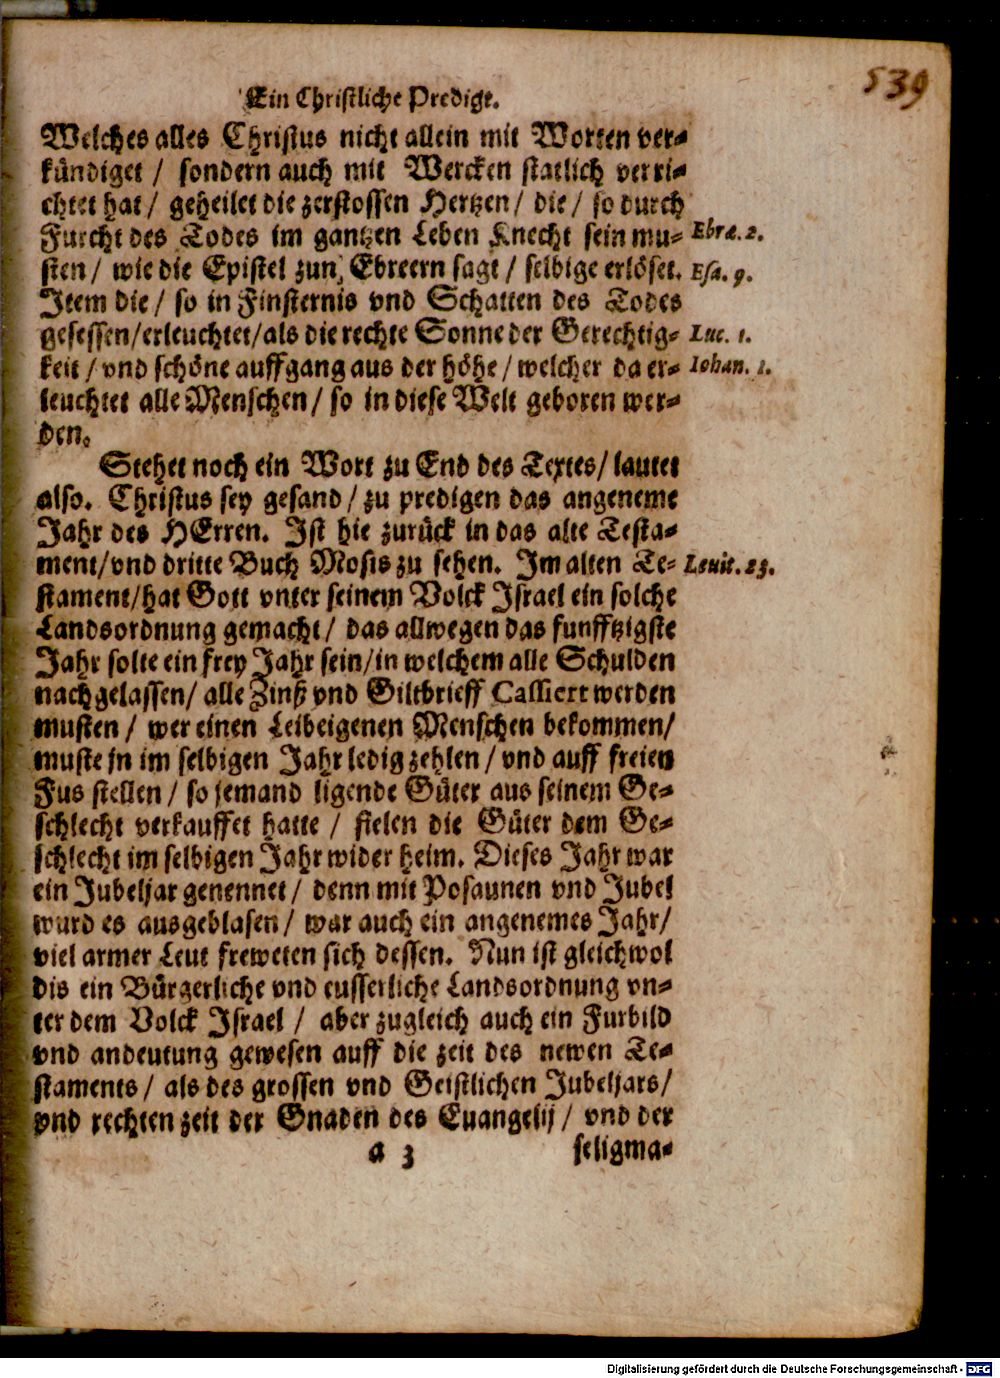 539
Ein Christliche Predigt.
Welches alles Christus nicht allein mit Worten ver-
kündiget / sondern auch mit Wercken statlich verri-
chtet hat / geheilet die zerstossen Hertzen / die / so durch
Furcht des Todes im gantzen Leben Knecht sein mu- Ebrę. 2.
sten / wie die Epistel zun Ebreern sagt / selbige erlöset. Esa. 9.
Item die / so in Finsternis vnd Schatten des Todes
gesessen/erleuchtet/als die rechte Sonne der Gerechtig- Luc. 1.
keit / vnd schöne auffgang aus der höhe / welcher da er- Iohan. 1.
leuchtet alle Menschen / so in diese Welt geboren wer-
den.
Stehet noch ein Wort zu End des Textes/ lautet
also. Christus sey gesand / zu predigen das angeneme
Jahr des HErren. Ist hie zurück in das alte Testa-
ment/vnd dritte Buch Mosis zu sehen. Im alten Te- Leuit. 25.
stament/hat Gott vnter seinem Volck Israel ein solche
Landsordnung gemacht / das allwegen das funfftzigste
Jahr solte ein frey Jahr sein/in welchem alle Schulden
nachgelassen/ alle Zinß vnd Giltbrieff Cassiert werden
musten / wer einen Leibeigenen Menschen bekommen/
muste jn im selbigen Jahr ledig zehlen / vnd auff freien
Fus stellen / so jemand ligende Güter aus seinem Ge-
schlecht verkauffet hatte / fielen die Güter dem Ge-
schlecht im selbigen Jahr wider heim. Dieses Jahr war
ein Jubeljar genennet / denn mit Posaunen vnd Jubel
wurd es ausgeblasen / war auch ein angenemes Jahr/
viel armer Leut freweten sich dessen. Nun ist gleichwol
dis ein Bürgerliche vnd eusserliche Landsordnung vn-
ter dem Volck Israel / aber zugleich auch ein Furbild
vnd andeutung gewesen auff die zeit des newen Te-
staments / als des grossen vnd Geistlichen Jubeljars/
vnd rechten zeit der Gnaden des Euangelij / vnd der
a 3 seligma-
Digitalisierung gefördert durch die Deutsche Forschungsgemeinschaft - DFG